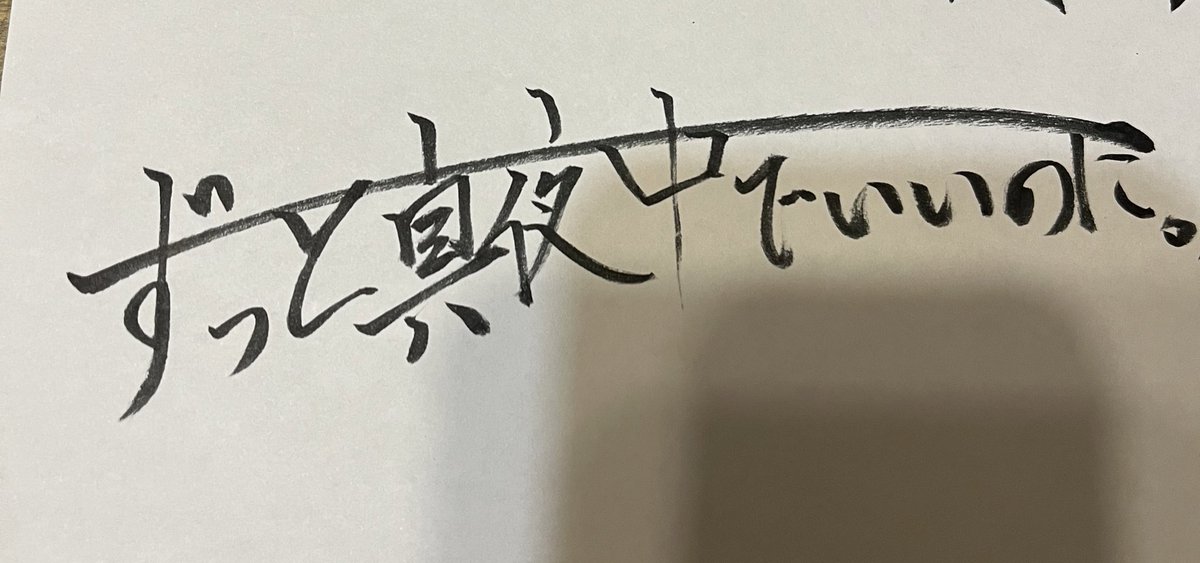 ずっと真夜中でいいのに。